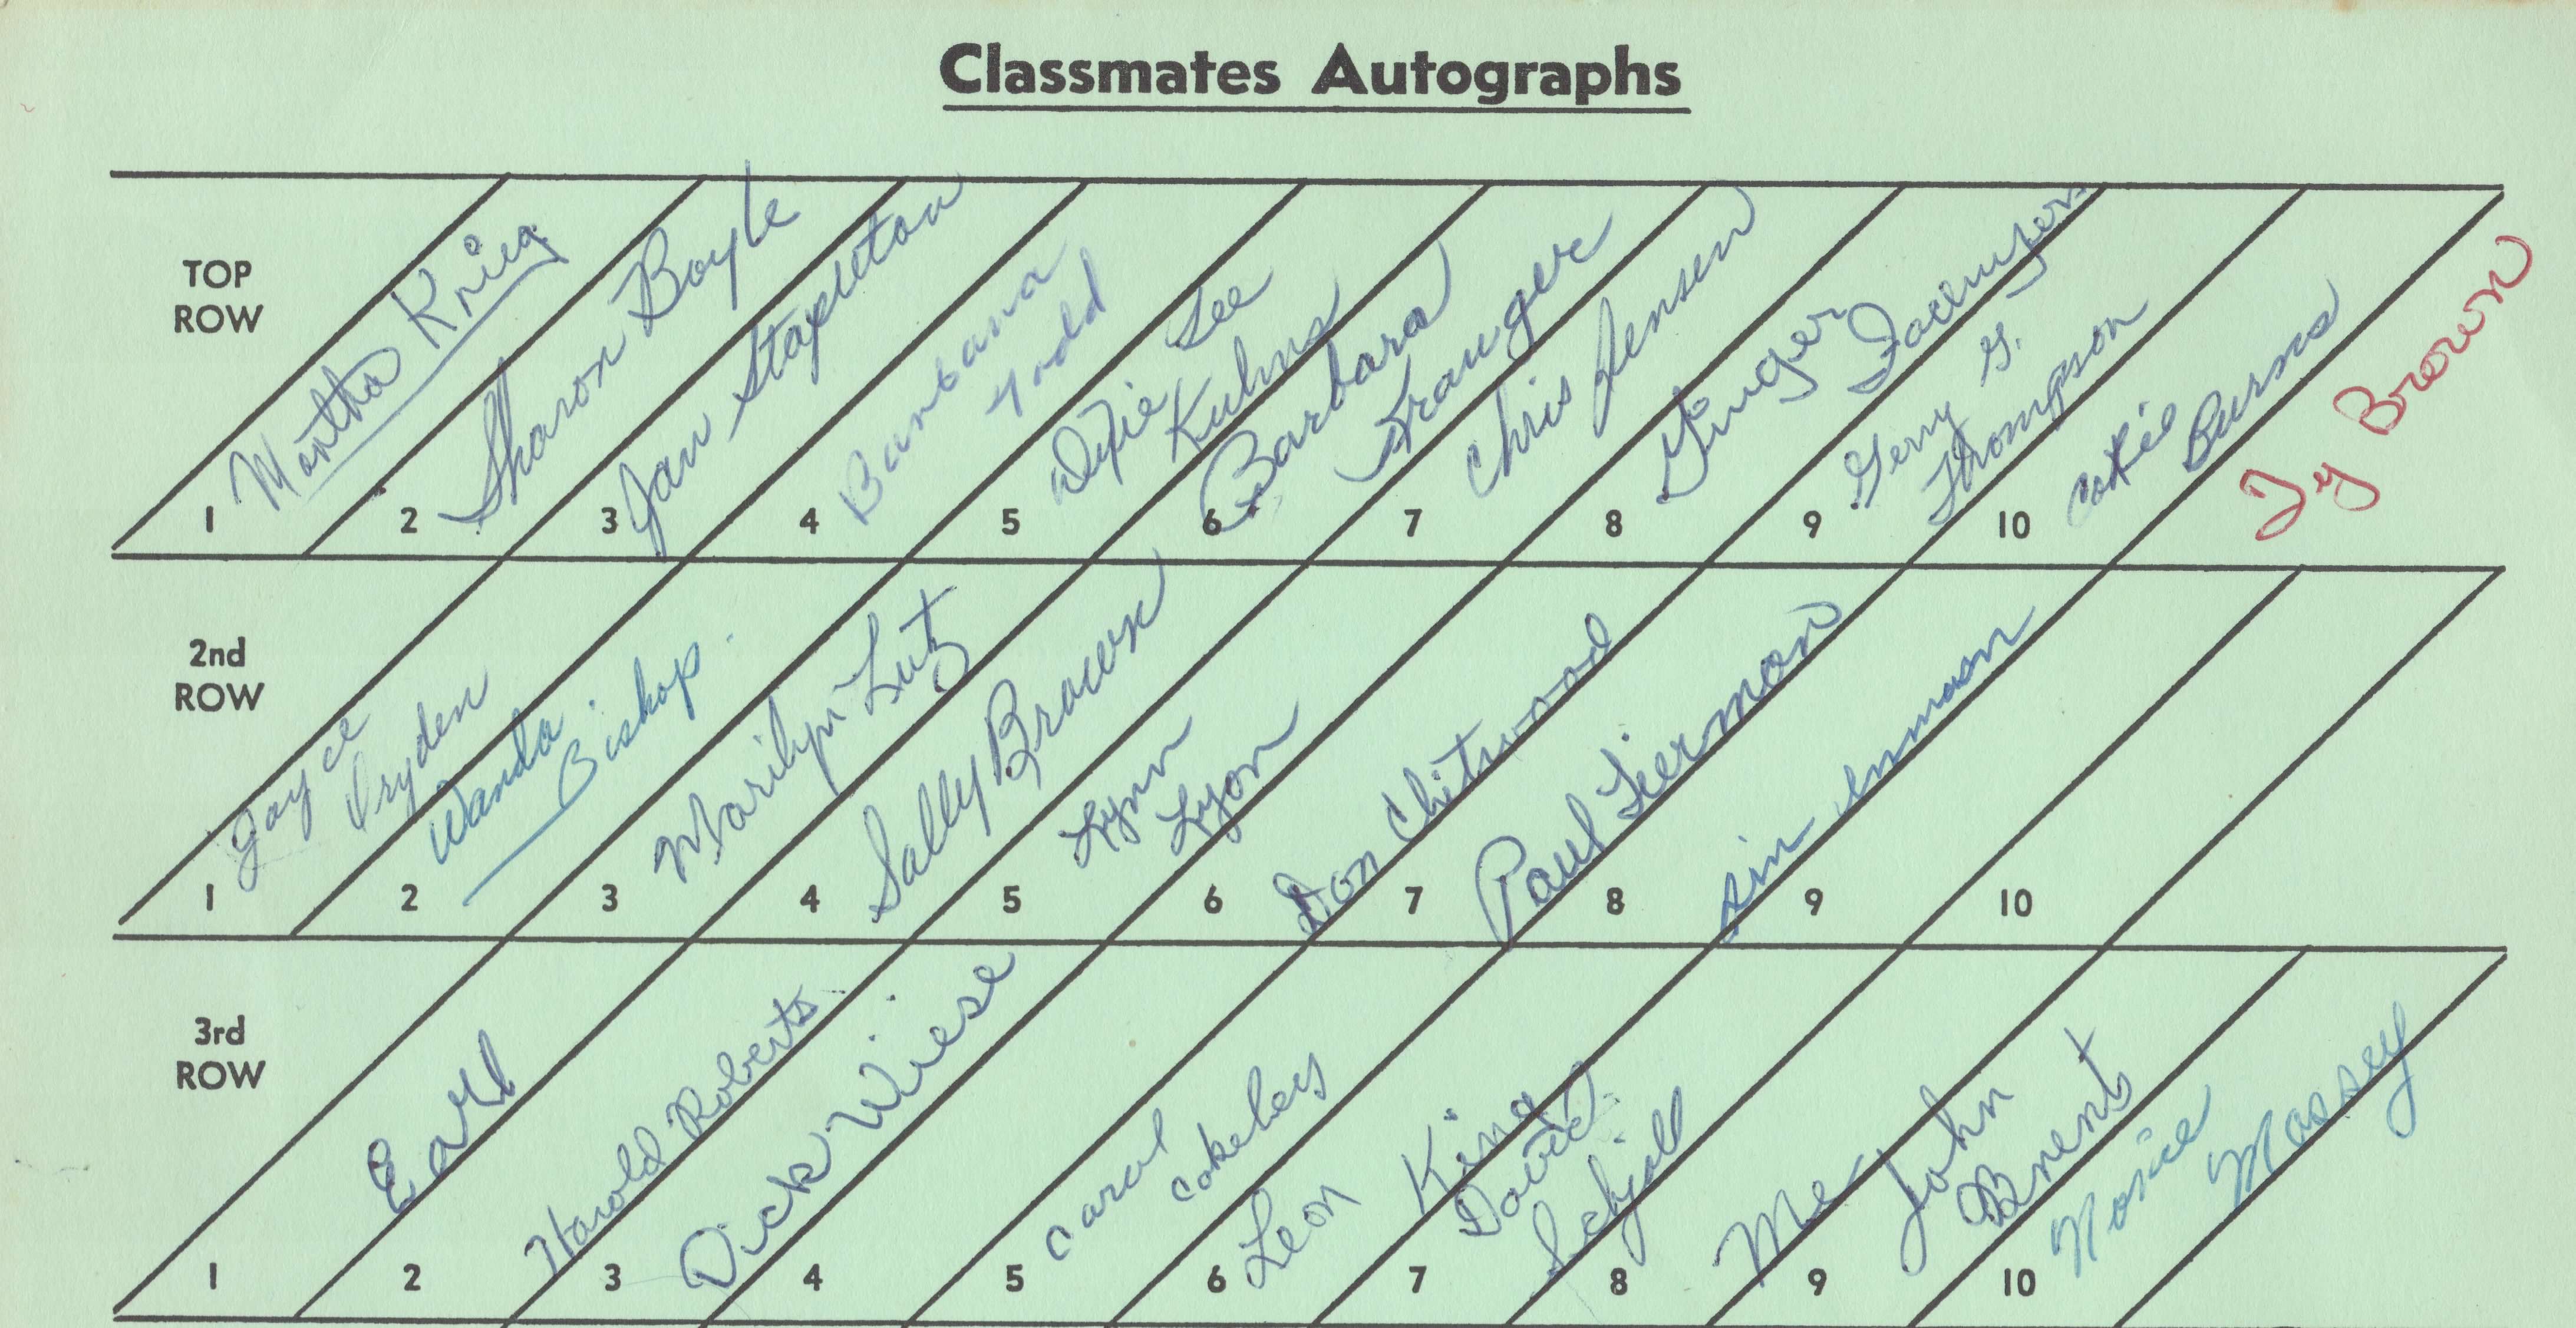 Classmates Autographs
TOP
ROW
1 Martha Krieg
2 Sharon Boyle
3 Jan Stapleton
4 Barbara
Todd
5 Dixie Lee
Kuhns
6 Barbara
Franger
7 Chris Jensen
8 Ginger
9 Gerry G.
Thompson
10 Cokie Burns
Ty Brown
2nd
ROW
1 Joyce
Dryden
2 Wanda
Bishop.
3 Marilyn Lutz
4 Sally Brown
5 Lynn
Lyon
6 Don Chitwood
7 Paul Lierman
8 Inman
9
10
3rd
ROW
1 Earl
2 Harold Roberts
3 Dick Wiese
4
5 Carol
Cokeley
6 Leon King
7 David
8 Me
9 John
Brent
10 Massey